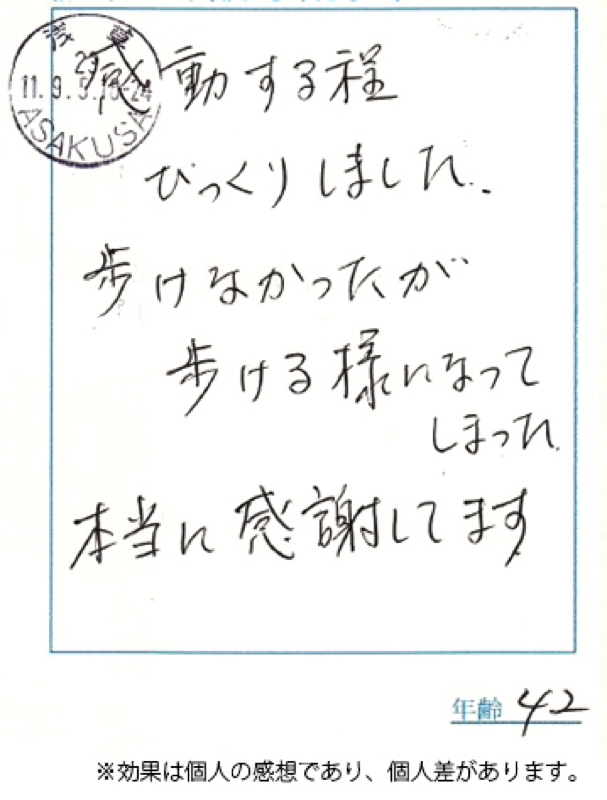 浅草
11.9.
ASAKUSA
感動する程
びっくりしました.
歩けなかったが
歩ける様になって
しまった
本当に感謝してます
年齢 42
※効果は個人の感想であり、個人差があります。